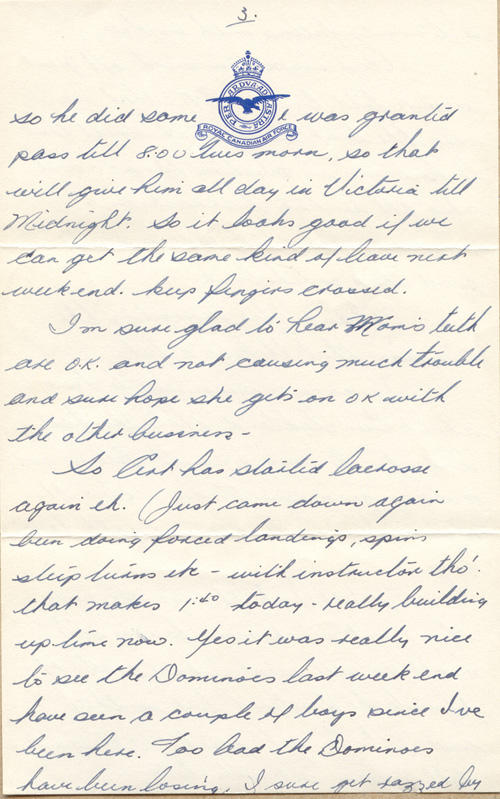 3.
PER ARDVA AD ASTRA
ROYAL CANADIAN AIR FORCE
so he did some & was granted
pass till 8:00 this morn, so that
will give him all day in Victoria till
Midnight. So it looks good if we
can get the same kind of leave next
weekend. keep fingers crossed.
I'm sure glad to hear Mom's teeth
are O.K. and not causing much trouble
and sure hope she gets on OK with
the other business -
So Art has started lacrosse
again eh. (Just came down again
been doing forced landings, spins
steep turns etc - with instructor tho'.
that makes 1:40 today - really building
up time now. Yes it was really nice
to see the Dominoes last week end
have seen a couple of boys since I've
been here. Too bad the Dominoes
have been losing. I sure get razzed by